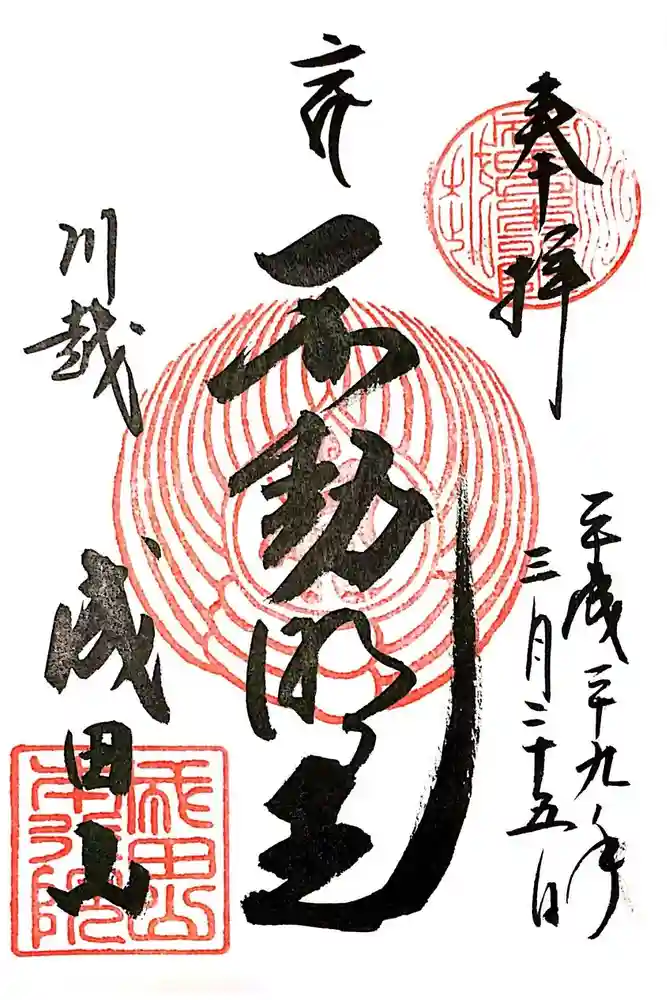 奉拝
平成二十九年
三月二十五日
不動明王
川越
成田山